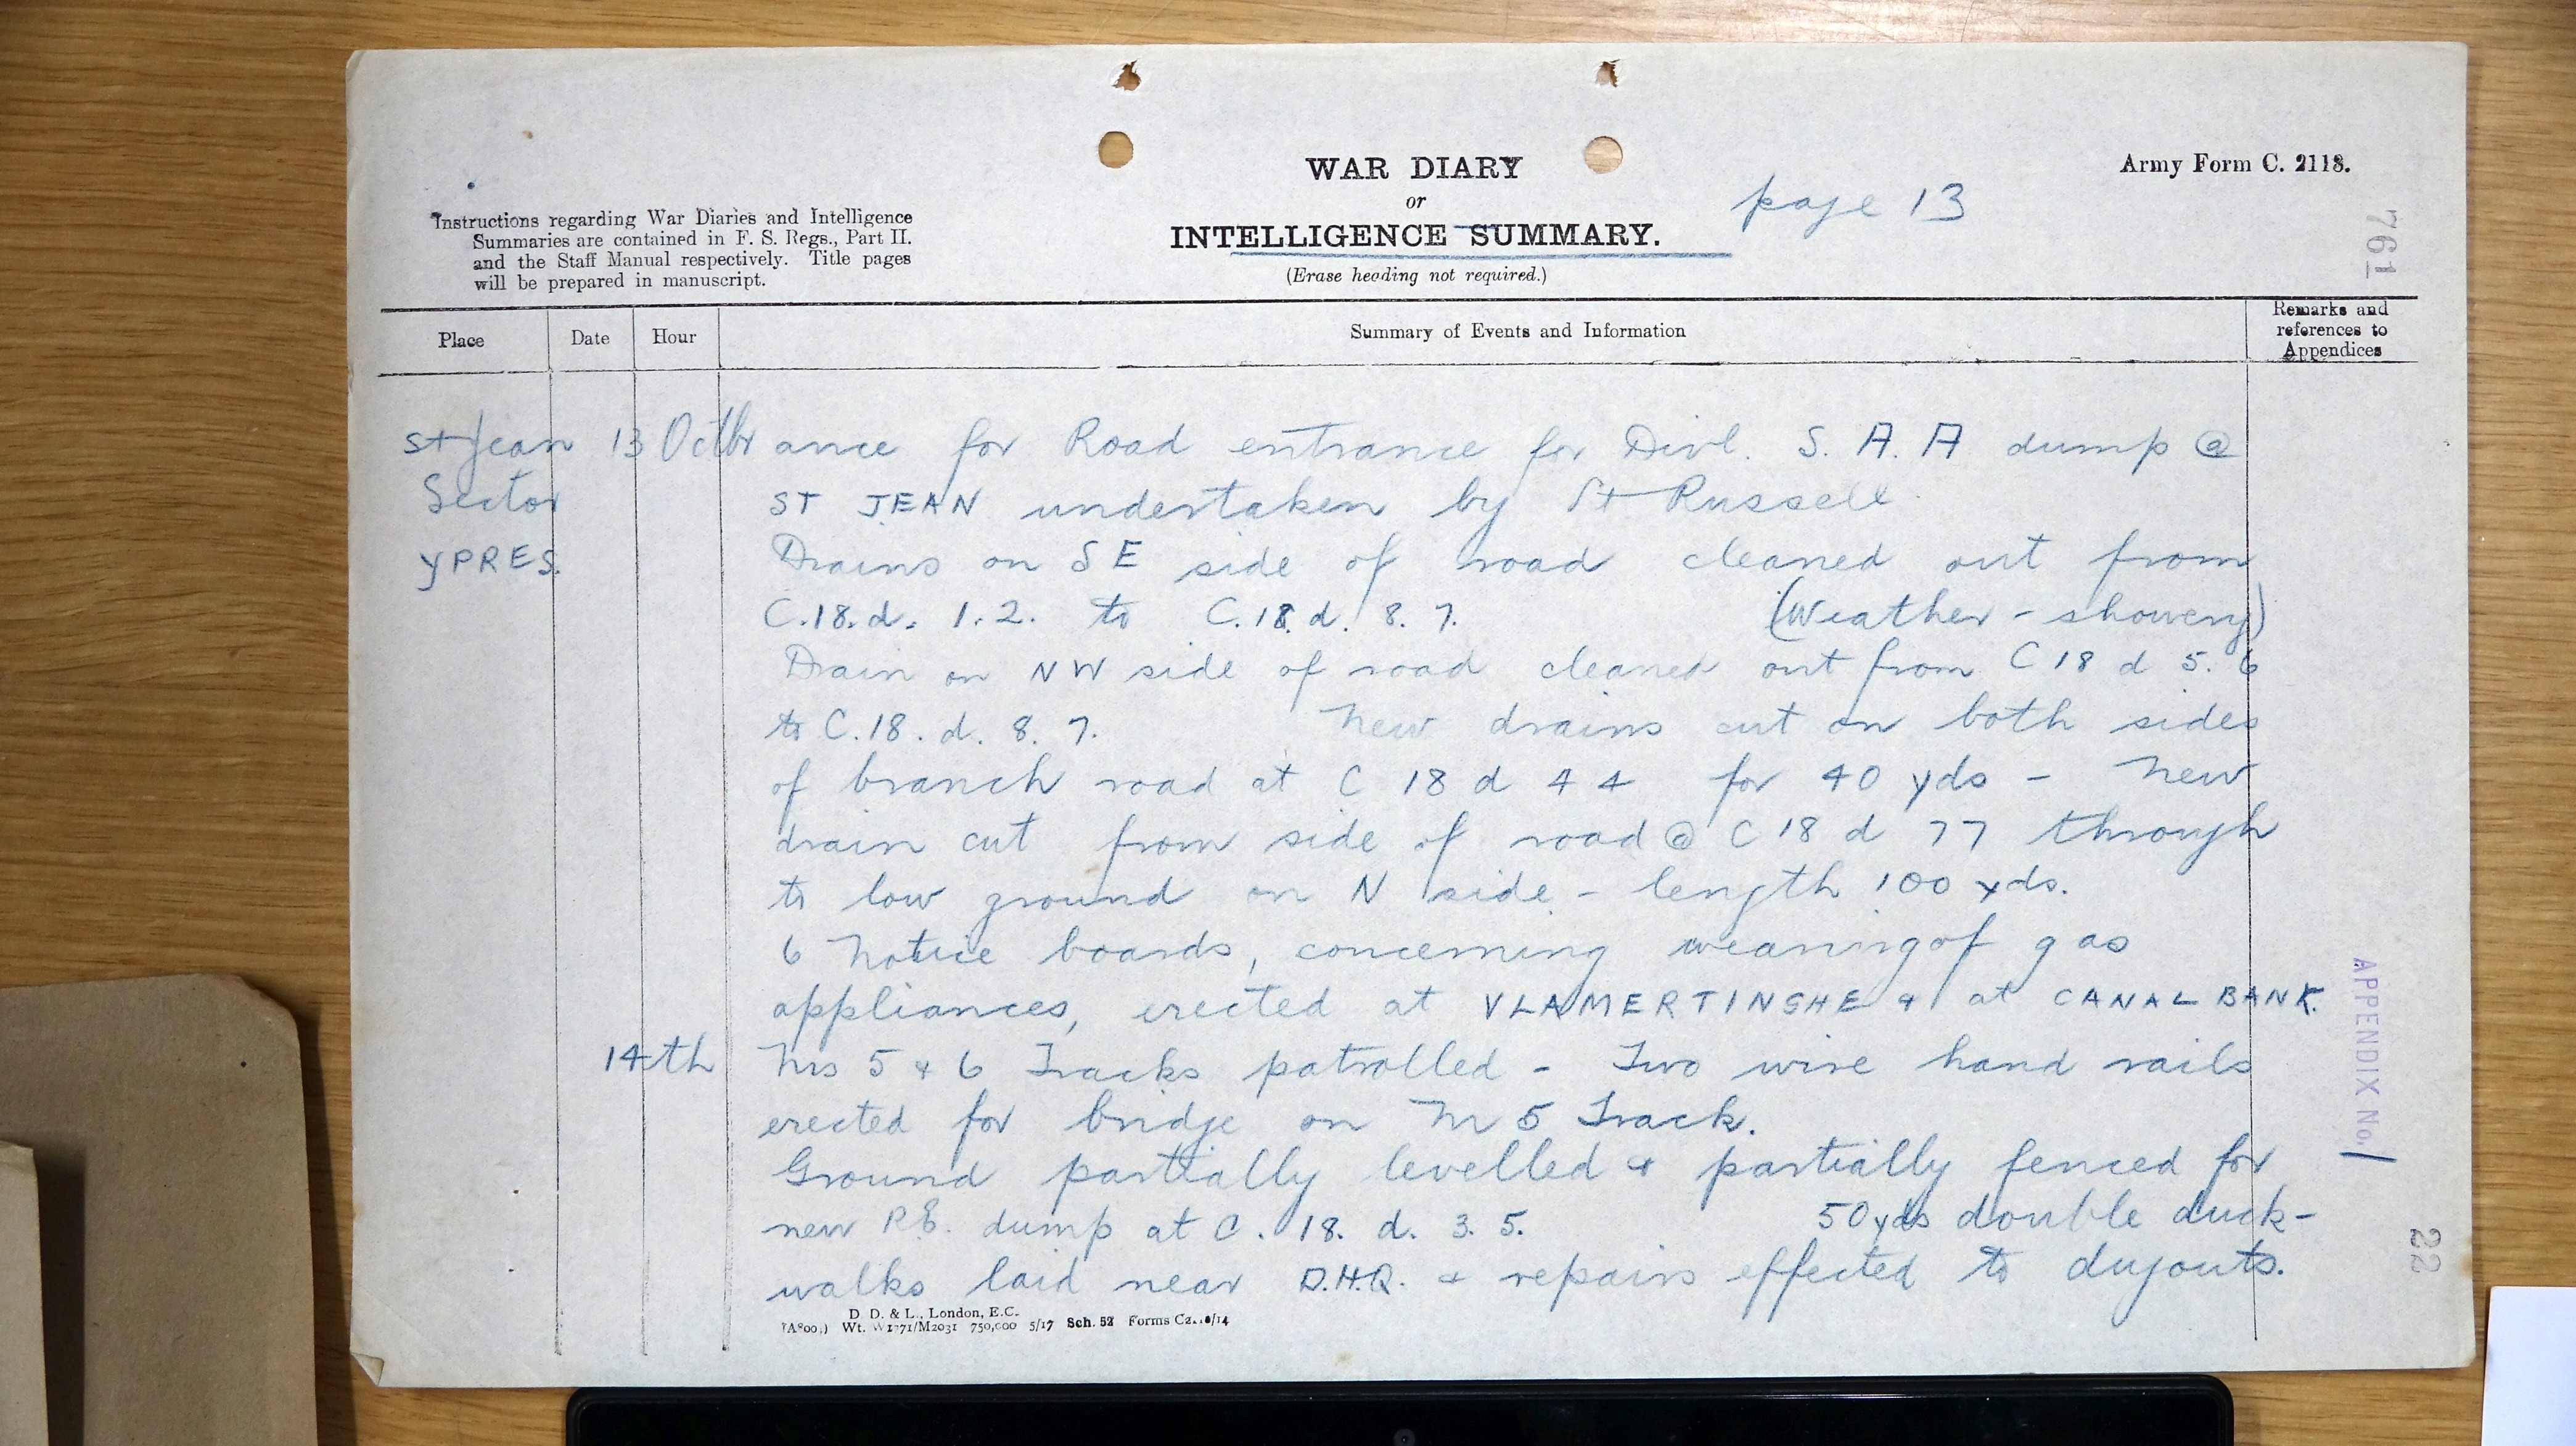 WAR DIARY
or
INTELLIGENCE SUMMARY.
(Erase heading not required.)
page 13
Army Form C. 2118.
761
Instructions regarding War Diaries and Intelligence
Summaries are contained in F. S. Regs., Part II.
and the Staff Manual respectively. Title pages
will be prepared in manuscript.
Place
Date
Hour
Summary of Events and Information
Remarks and
references to
Appendices
St Jean 13 Octbr ance for Road entrance for Divl. S. A. A dump @
Sector ST JEAN undertaken by Russell
YPRES. Drains on SE side of road cleaned out from
C.18.d. 1.2. to C.18.d. 8.7. (Weather - showery)
Drain on NW side of road cleaned out from C 18 d 5.6
to C.18.d. 8.7. New drains cut on both sides
of branch road at C 18 d 4 4 for 40 yds - New
drain cut from side of road @ C 18 d 77 through
to low ground on N side - length 100 yds.
6 Notice boards, concerning wearing of gas
appliances, erected at VLAMERTINGHE & at CANAL BANK.
14th Nrs 5 & 6 Tracks patrolled - Two wire hand rails
erected for bridge on Nr 5 Track.
Ground partially levelled & partially fenced for
new R.E. dump at C. 18. d. 3. 5. 50 yds double duck-
walks laid near D.H.Q. & repairs effected to dugouts.
APPENDIX No. 1
22
D. D. & L., London, E.C.
Wt. W1771/M2031 750,000 5/17 Sch. 52 Forms